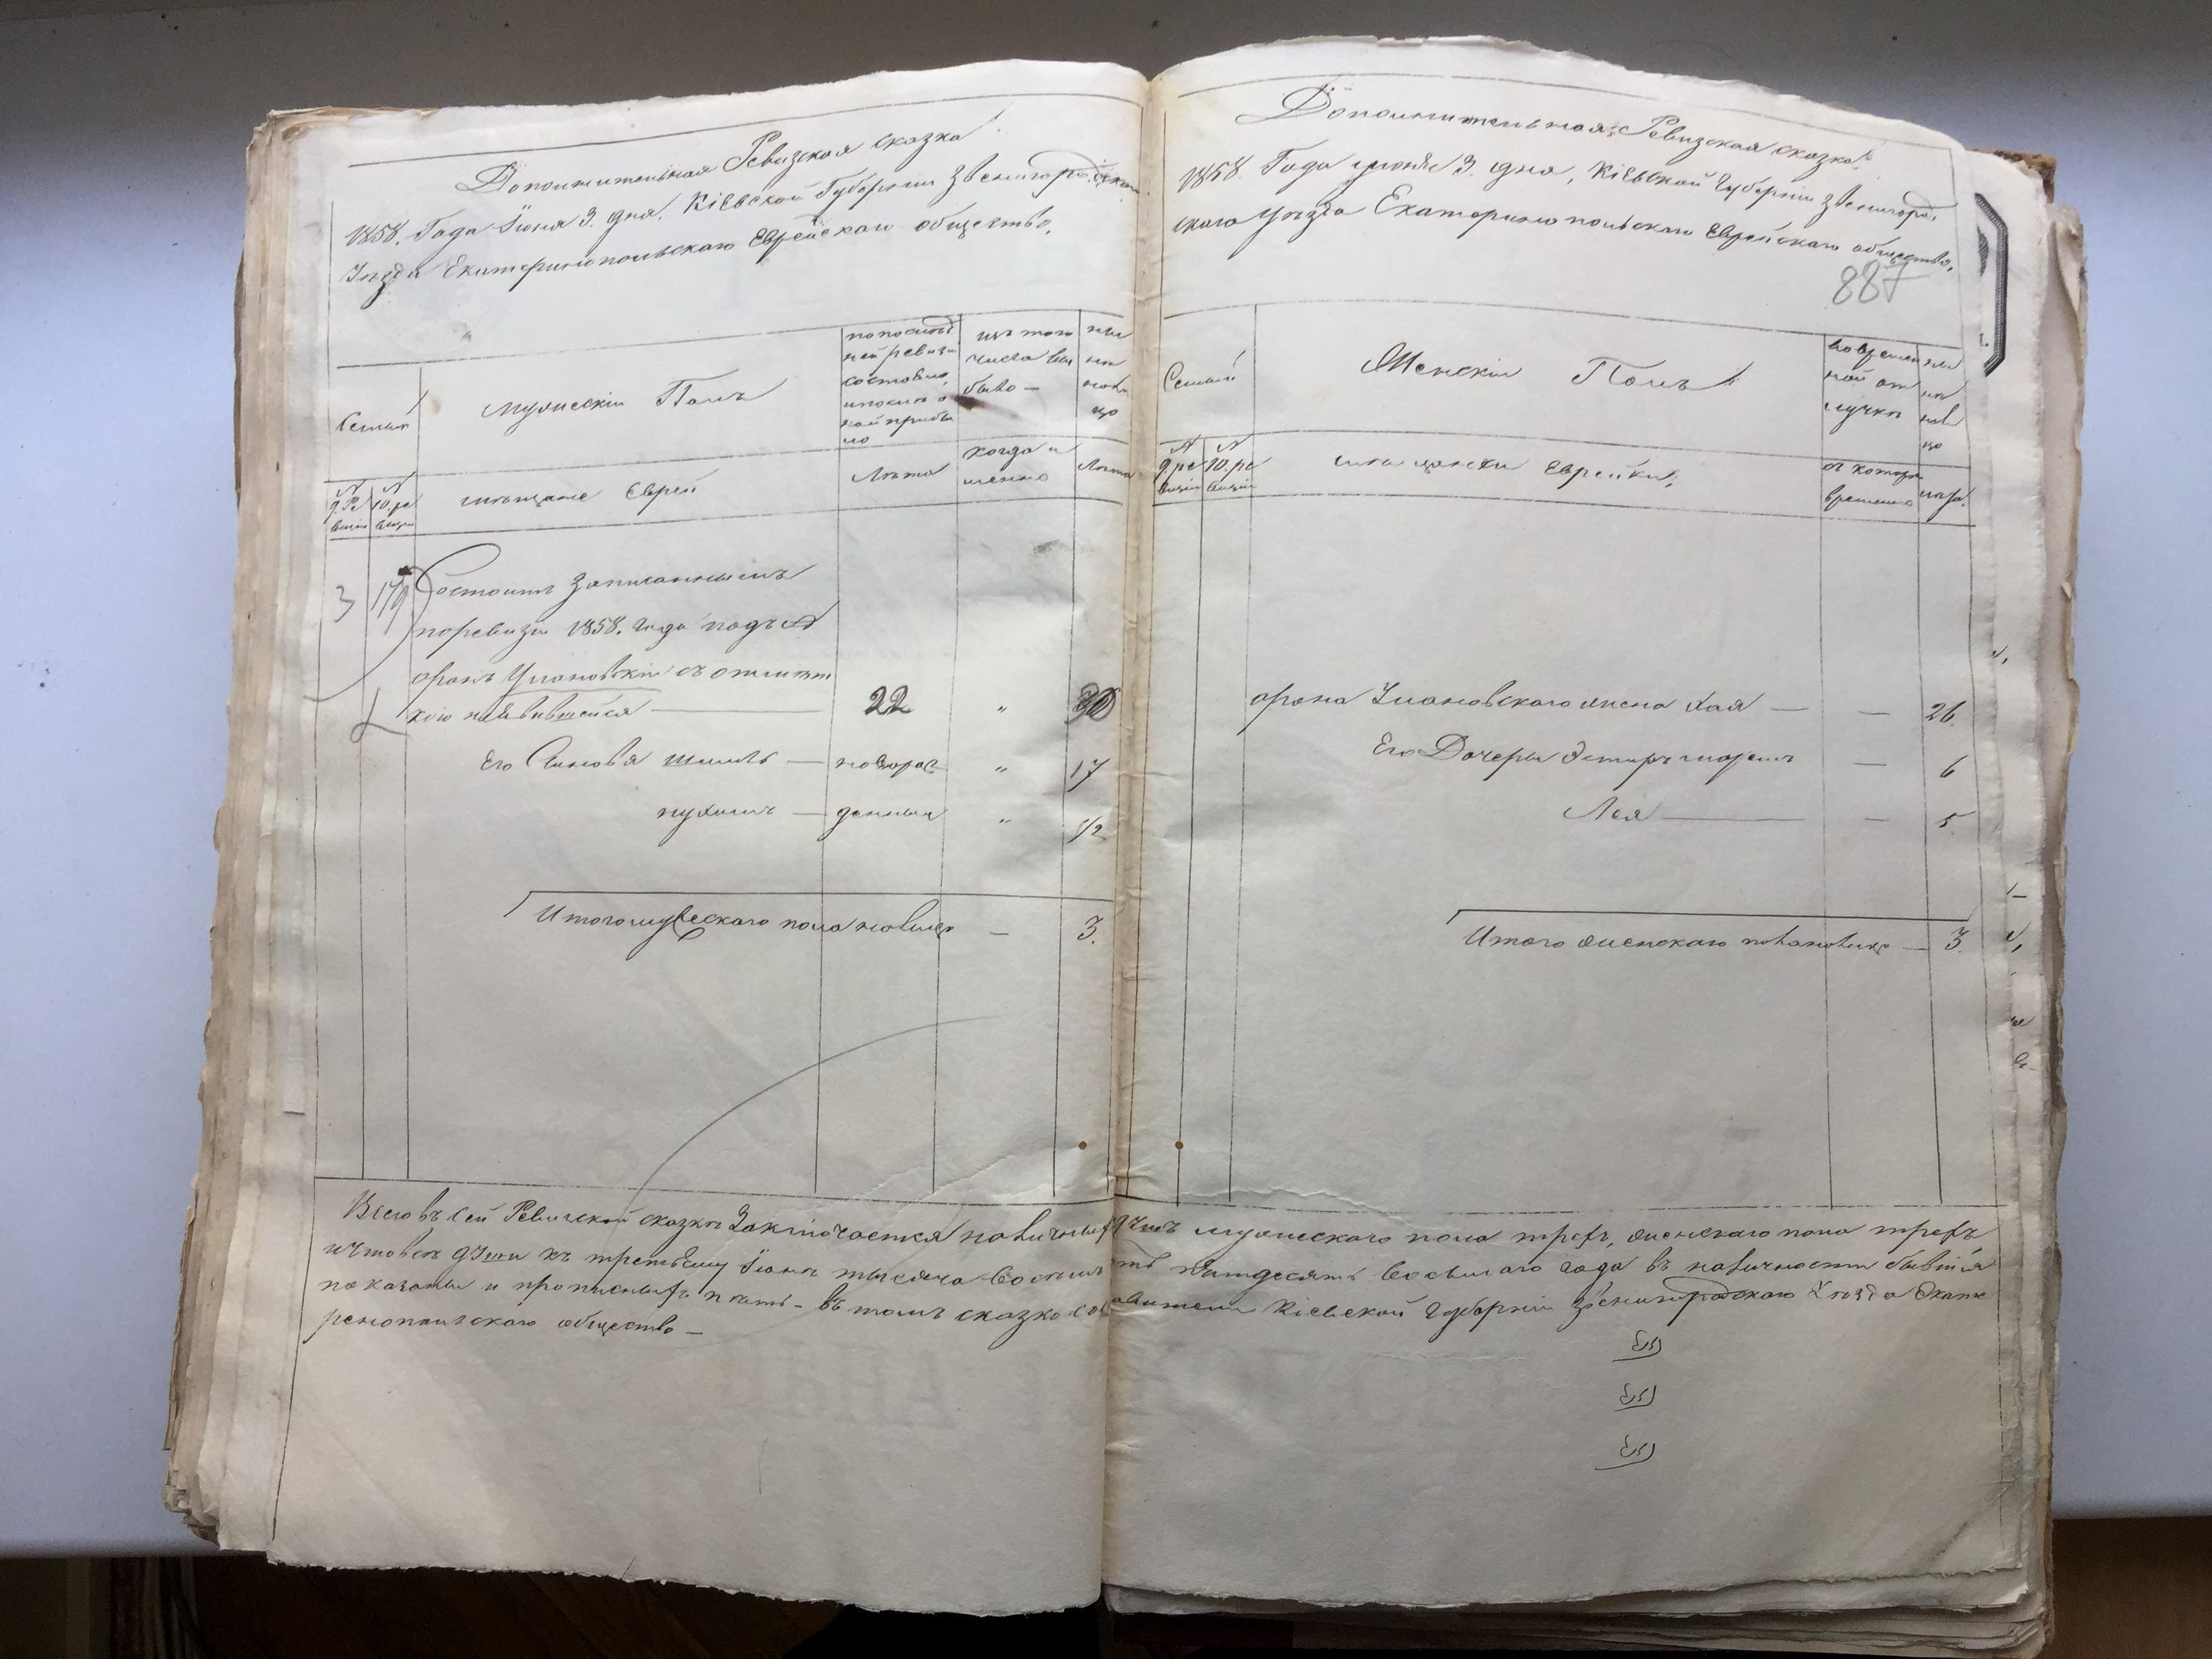 Дополнительная Ревизская сказка
1858. Года Іюня 3. дня, Кіевской Губерніи Звенигородскаго
Уезда Екатеринопольскаго Еврейскаго общества,
Семьи
Мужескій Полъ
по послѣд
ней ревизіи
состояло,
и послѣ о
ной прибы
ло
изъ того
числа вы
было —
ны
нѣ
на ли
цо
№ 9. Ре
визіи
№ 10. ре
визіи
мѣщане Евреи
Лѣта
когда и
менно
Лѣта
3 179 Состоитъ записаннымъ
по ревизіи 1858. года подъ №
Аронъ Улановскій съ отмѣт
кою неявившейся — 22 " 30
Его Сыновья Шмиль — новорож " 17
Нухимъ — денныи " 1/2
Итого мужескаго пола на лицо — 3.
Дополнительная Ревизская сказка
1858. Года Іюня 3. дня, Кіевской Губерніи Звенигород
скаго Уезда Екатеринопольскаго Еврейскаго общества,
887
Семьи
Женскій Полъ
во времен
ной от
лучкѣ
ны
нѣ
на ли
цо
№ 9. ре
визіи
№ 10. ре
визіи
мѣщанки Еврейки,
съ котора
времени
лѣта.
Арона Улановскаго жена Хая — — 26.
Его Дочери Эстеръ — 6
Лея — — 5.
Итого женскаго пола на лицо — 3.
Всего въ сей Ревизской сказкѣ Заключается наличныхъ душъ мужескаго пола трехъ, женскаго пола трехъ
къ третьему Іюня тысяча восемь сотъ пятдесятъ восьмаго года въ наличности бывшія
показаны и прописныхъ нѣтъ — въ томъ сказко составители Кіевской Губерніи Звенигородскаго Уезда Екате
ринопольскаго общества —